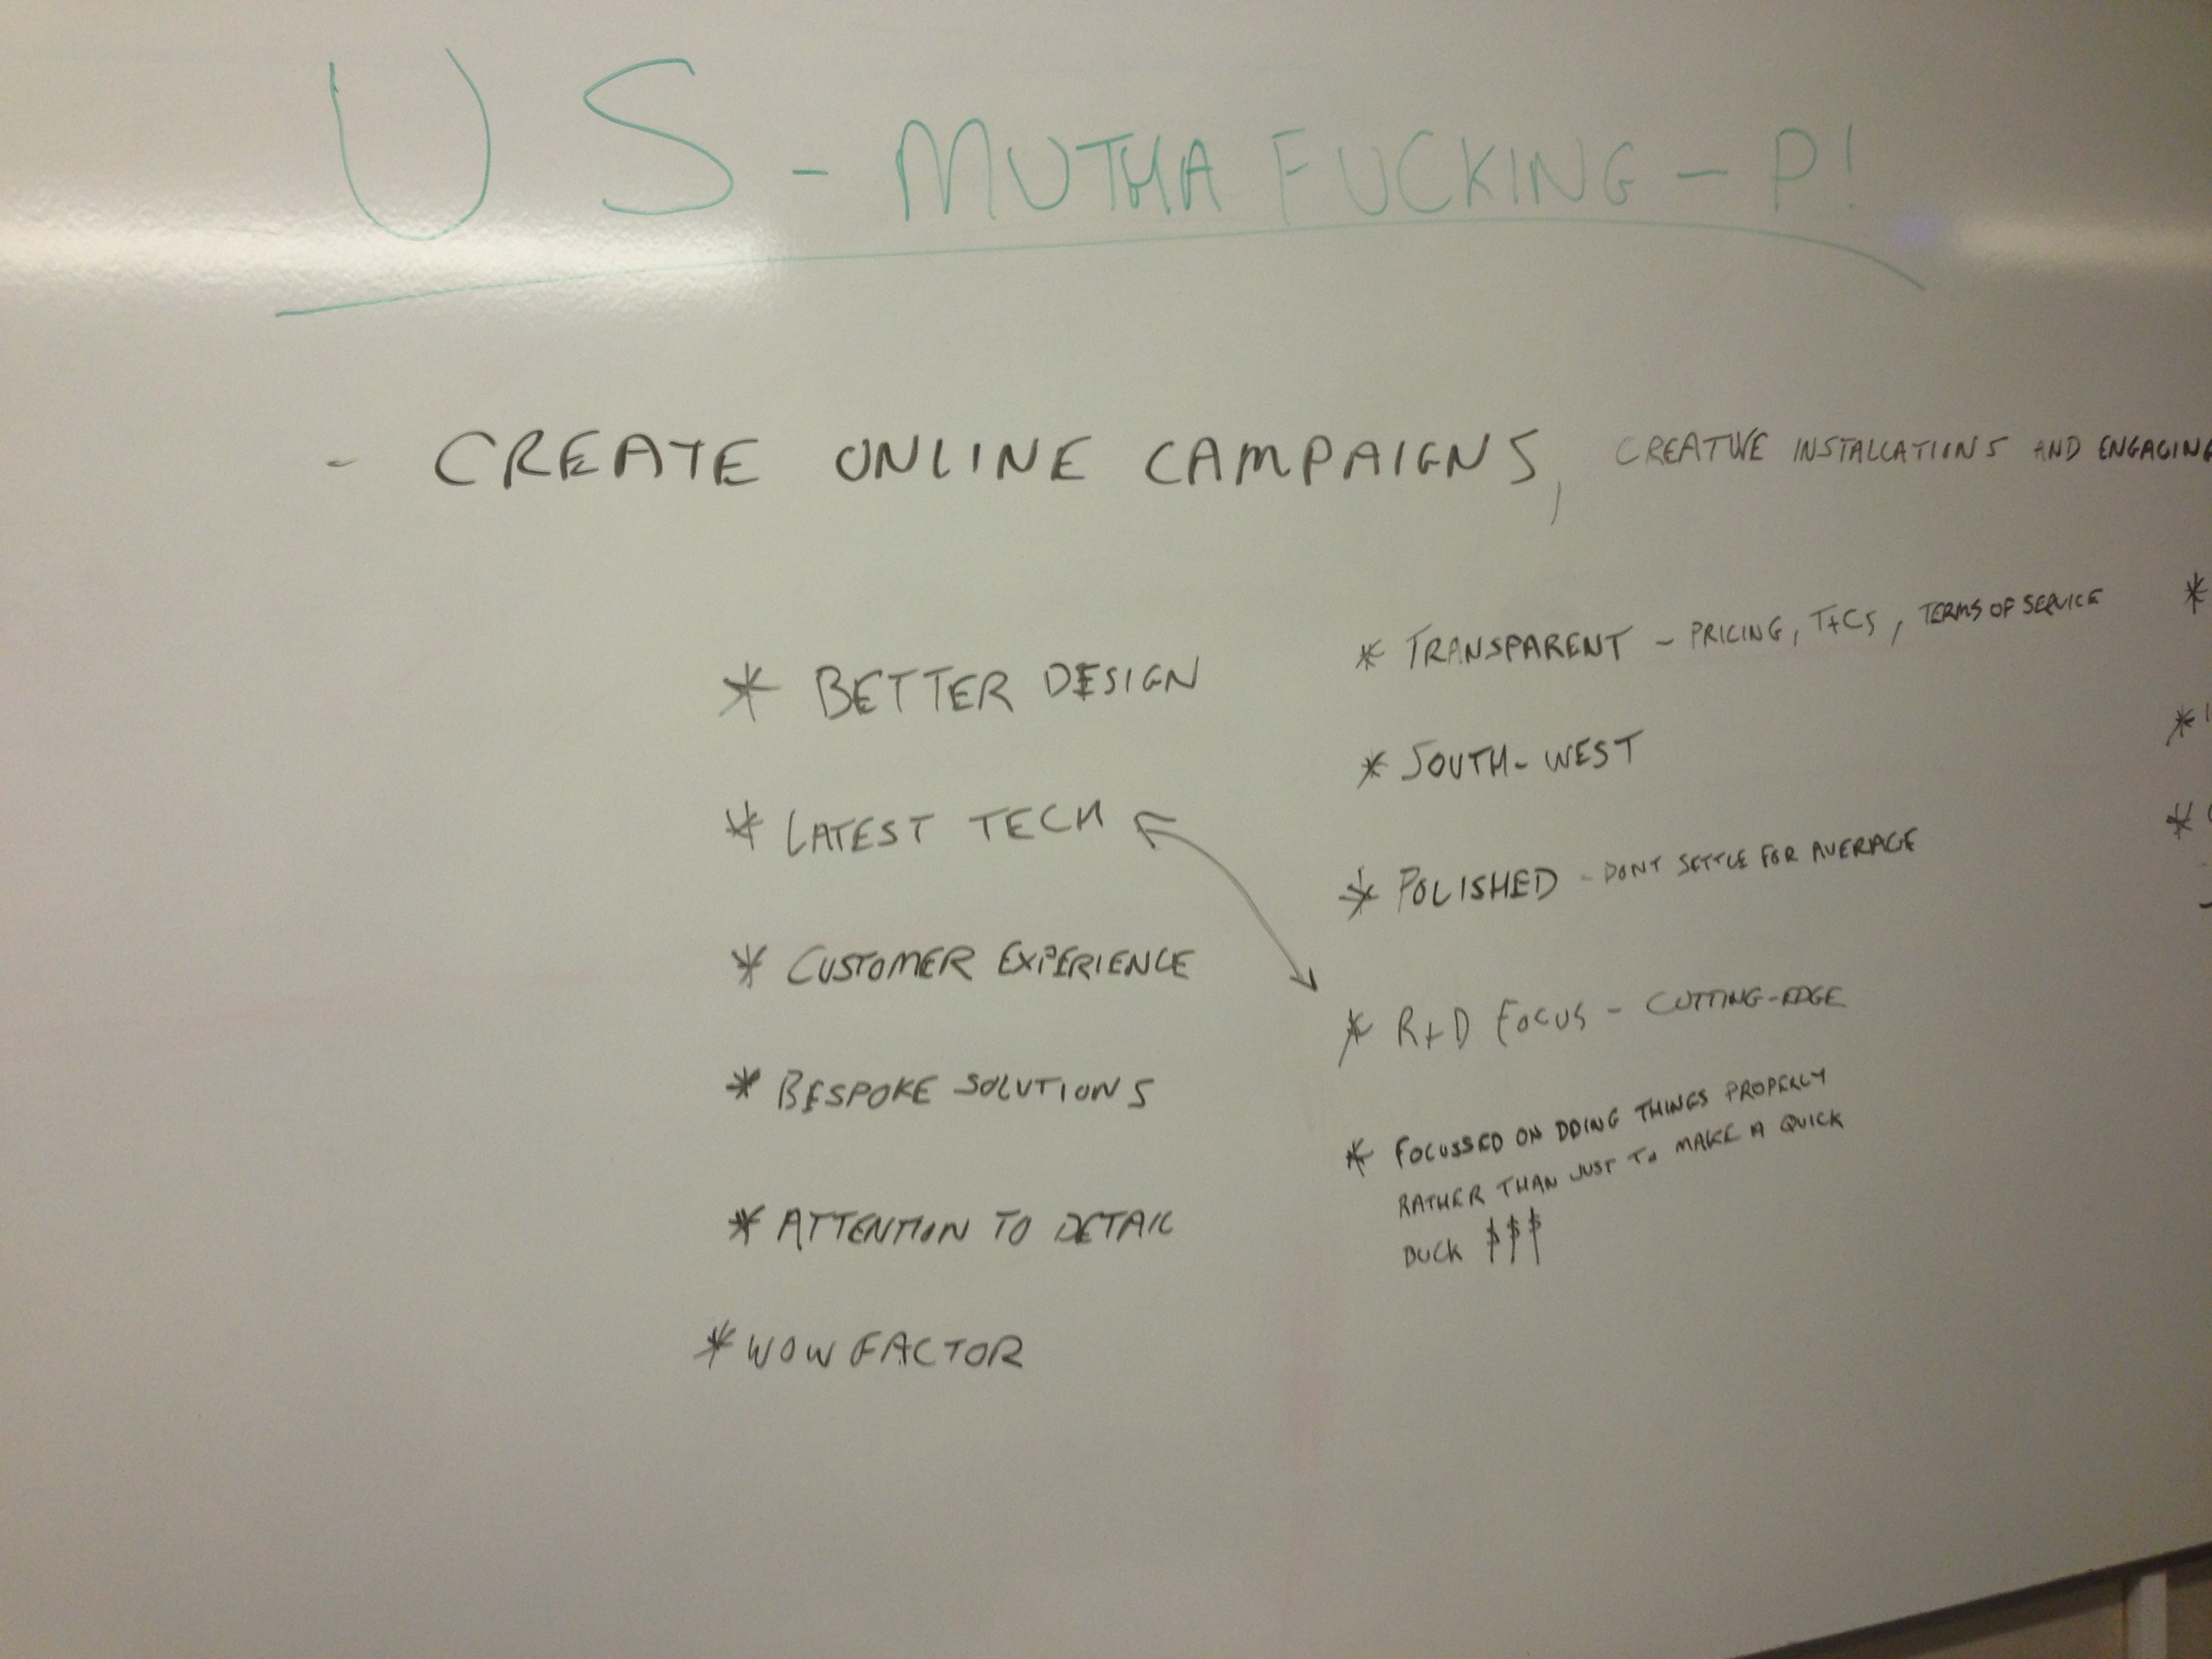 US - MUTHA FUCKING - P!
- CREATE ONLINE CAMPAIGNS, CREATIVE INSTALLATIONS AND ENGAGING
* BETTER DESIGN
* LATEST TECH
* CUSTOMER EXPERIENCE
* BESPOKE SOLUTIONS
* ATTENTION TO DETAIL
* WOW FACTOR
* TRANSPARENT - PRICING, T+CS, TERMS OF SERVICE
* SOUTH-WEST
* POLISHED - DONT SETTLE FOR AVERAGE
* R+D FOCUS - CUTTING-EDGE
* FOCUSSED ON DOING THINGS PROPERLY
RATHER THAN JUST TO MAKE A QUICK
BUCK $$$
*
*
*